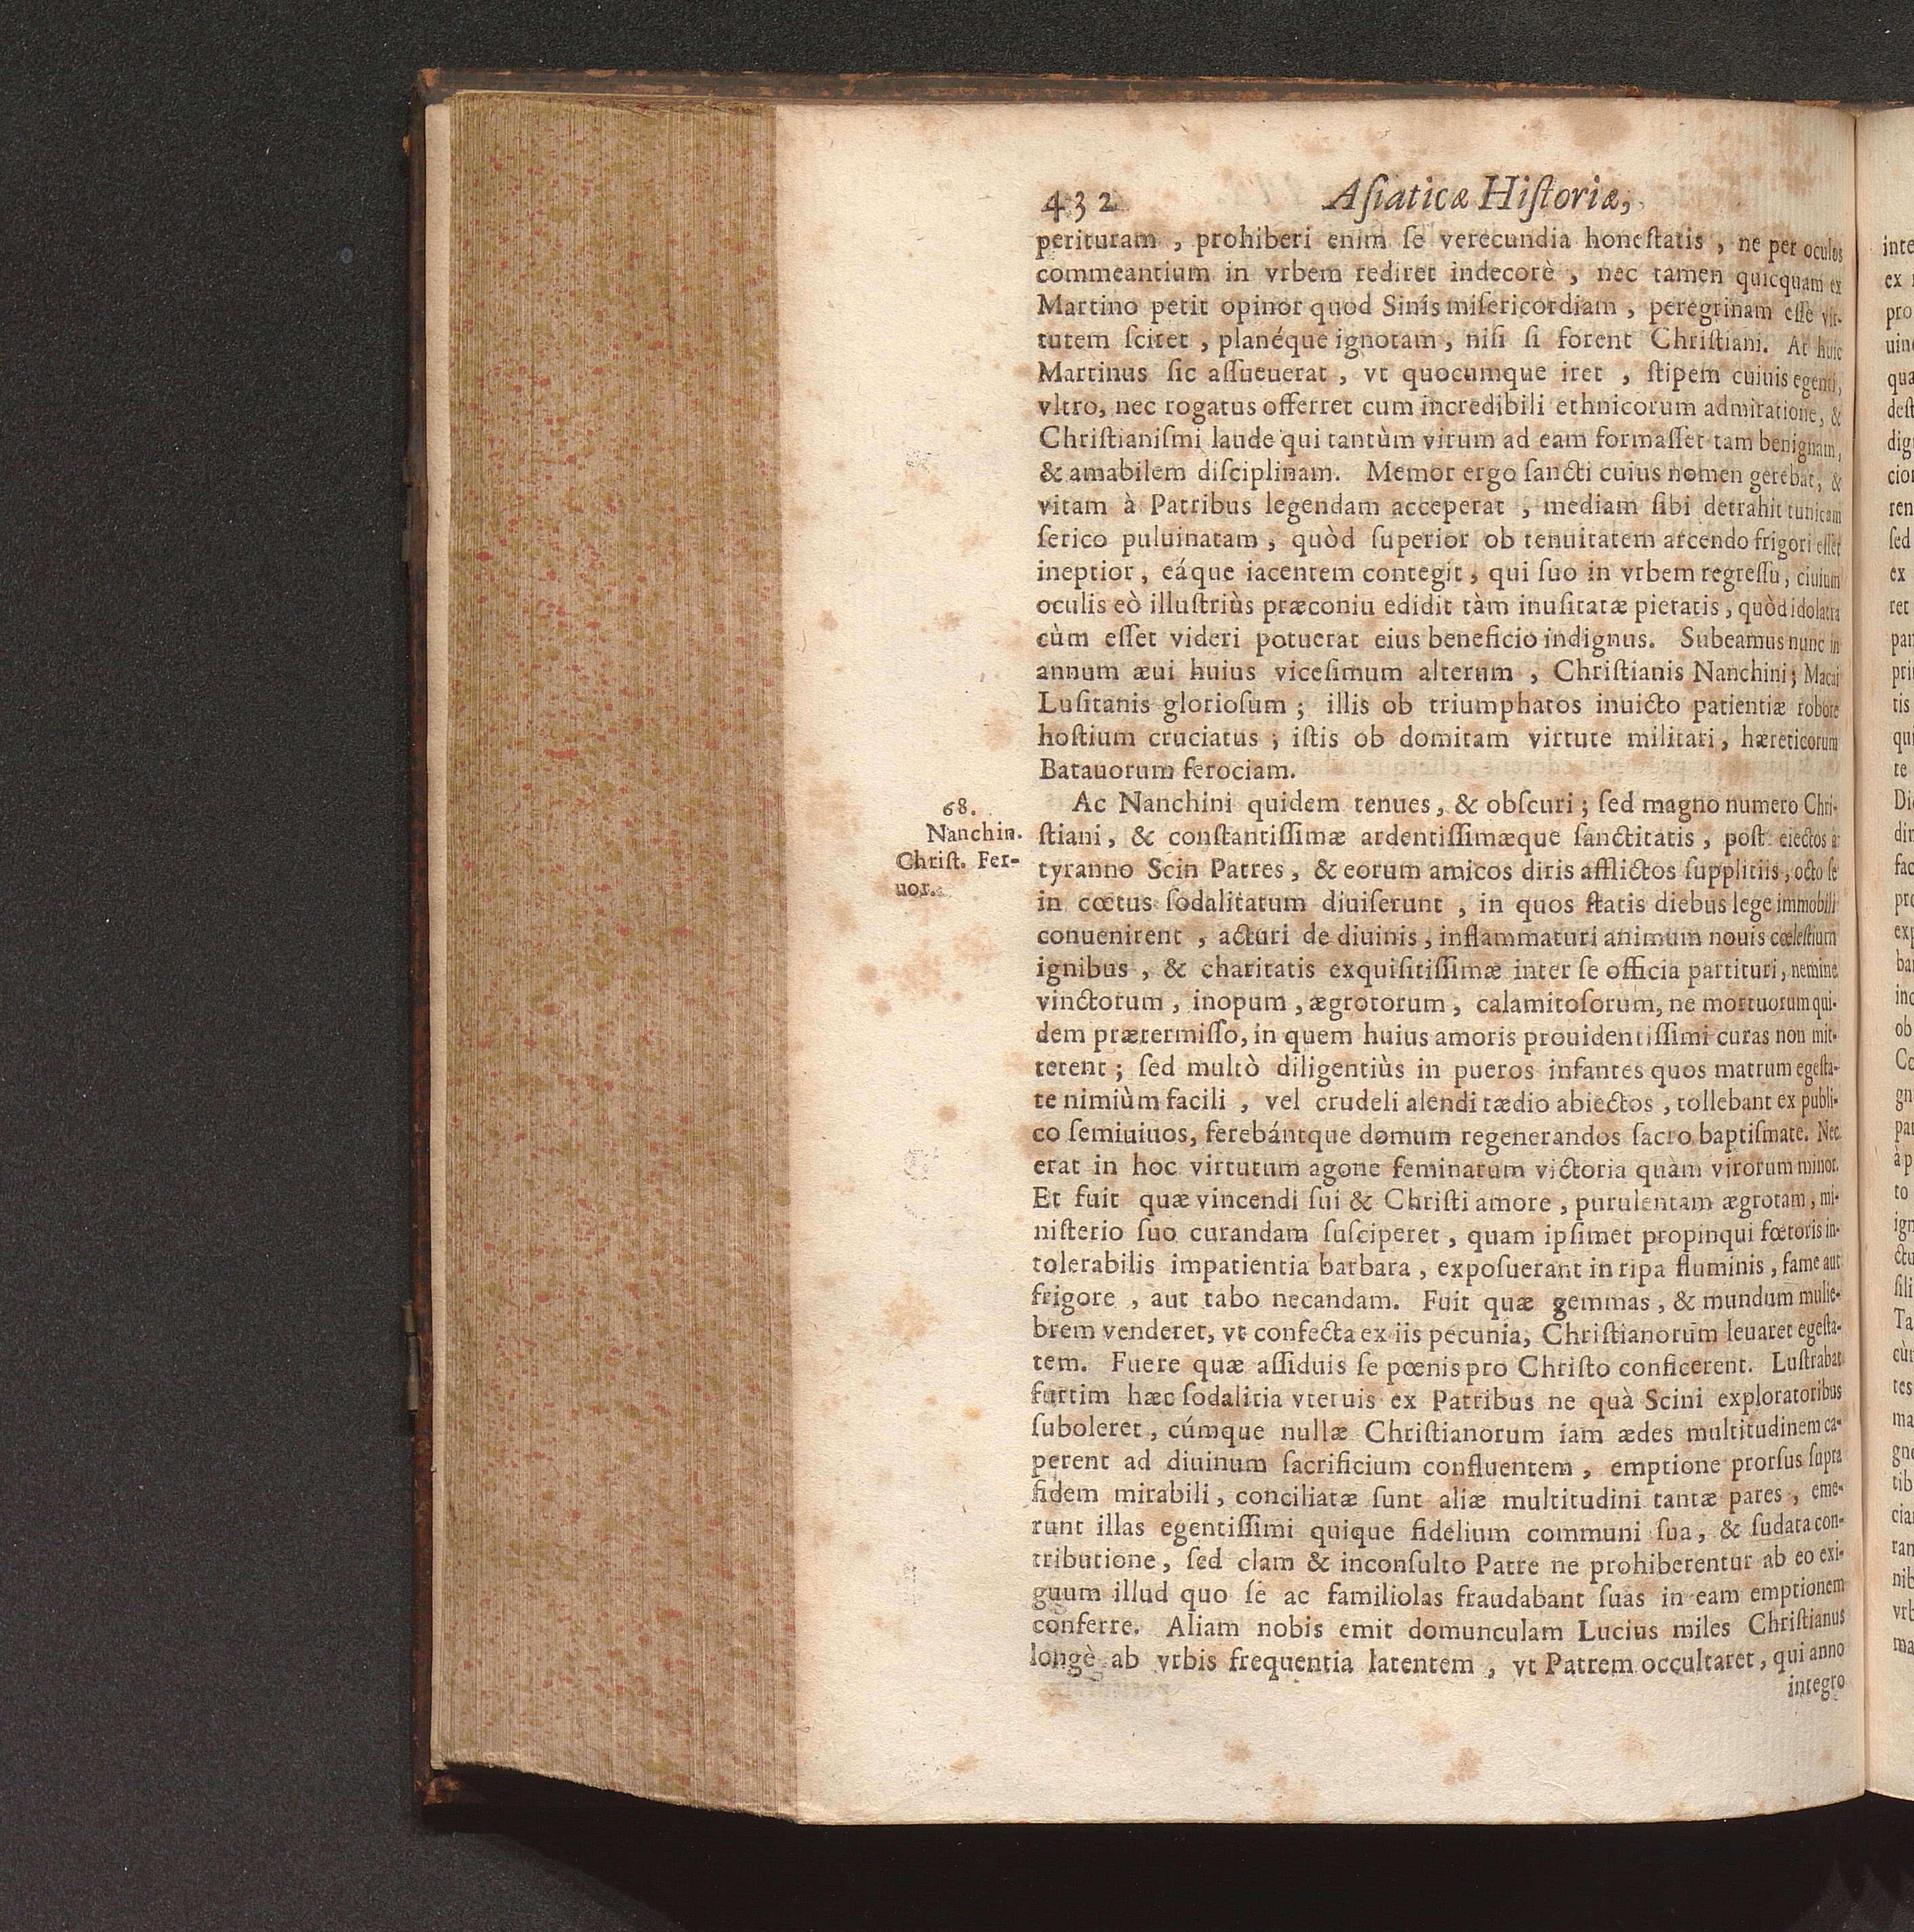 432 Asiaticæ Historiæ,
perituram , prohiberi enim se verecundia honestatis , ne per oculos
commeantium in vrbem rediret indecorè , nec tamen quicquam ex
Martino petit opinor quod Sinis misericordiam , peregrinam esse vir-
tutem sciret , planéque ignotam , nisi si forent Christiani. At huic
Martinus sic assueuerat , vt quocumque iret , stipem cuiuis egenti,
vltro, nec rogatus offerret cum incredibili ethnicorum admiratione, &
Christianismi laude qui tantùm virum ad eam formasset tam benignam,
& amabilem disciplinam. Memor ergo sancti cuius nomen gerebat, &
vitam à Patribus legendam acceperat , mediam sibi detrahit tunicam
serico puluinatam , quòd superior ob tenuitatem arcendo frigori esset
ineptior , eáque iacentem contegit , qui suo in vrbem regressu, ciuium
oculis eò illustriùs præconiu edidit tàm inusitatæ pietatis , quòd idolatra
cùm esset videri potuerat eius beneficio indignus. Subeamus nunc in
annum æui huius vicesimum alterum , Christianis Nanchini ; Macai
Lusitanis gloriosum ; illis ob triumphatos inuicto patientiæ robore
hostium cruciatus ; istis ob domitam virtute militari , hæreticorum
Batauorum ferociam.
68.
Nanchin.
Christ. Fer-
uor.
Ac Nanchini quidem tenues , & obscuri ; sed magno numero Chri-
stiani , & constantissimæ ardentissimæque sanctitatis , post eiectos à
tyranno Scin Patres , & eorum amicos diris afflictos supplitiis , octo se
in cœtus sodalitatum diuiserunt , in quos statis diebus lege immobili
conuenirent , acturi de diuinis , inflammaturi animum nouis cœlestium
ignibus , & charitatis exquisitissimæ inter se officia partituri , nemine
vinctorum , inopum , ægrotorum , calamitosorum, ne mortuorum qui-
dem prætermisso, in quem huius amoris prouidentissimi curas non mit-
terent ; sed multò diligentiùs in pueros infantes quos matrum egesta-
te nimiùm facili , vel crudeli alendi tædio abiectos , tollebant ex publi-
co semiuiuos, ferebántque domum regenerandos sacro baptismate. Nec
erat in hoc virtutum agone feminarum victoria quàm virorum minor.
Et fuit quæ vincendi sui & Christi amore , purulentam ægrotam , mi-
nisterio suo curandam susciperet , quam ipsimet propinqui fœtoris in-
tolerabilis impatientia barbara , exposuerant in ripa fluminis , fame aut
frigore , aut tabo necandam. Fuit quæ gemmas , & mundum mulie-
brem venderet, vt confecta ex iis pecunia, Christianorum leuaret egesta-
tem. Fuere quæ assiduis se pœnis pro Christo conficerent. Lustrabat
furtim hæc sodalitia vteruis ex Patribus ne quà Scini exploratoribus
suboleret , cúmque nullæ Christianorum iam ædes multitudinem ca-
perent ad diuinum sacrificium confluentem , emptione prorsus supra
fidem mirabili , conciliatæ sunt aliæ multitudini tantæ pares , eme-
runt illas egentissimi quique fidelium communi sua , & sudata con-
tributione , sed clam & inconsulto Patre ne prohiberentur ab eo exi-
guum illud quo sè ac familiolas fraudabant suas in eam emptionem
conferre. Aliam nobis emit domunculam Lucius miles Christianus
longè ab vrbis frequentia latentem , vt Patrem occultaret , qui anno
integro